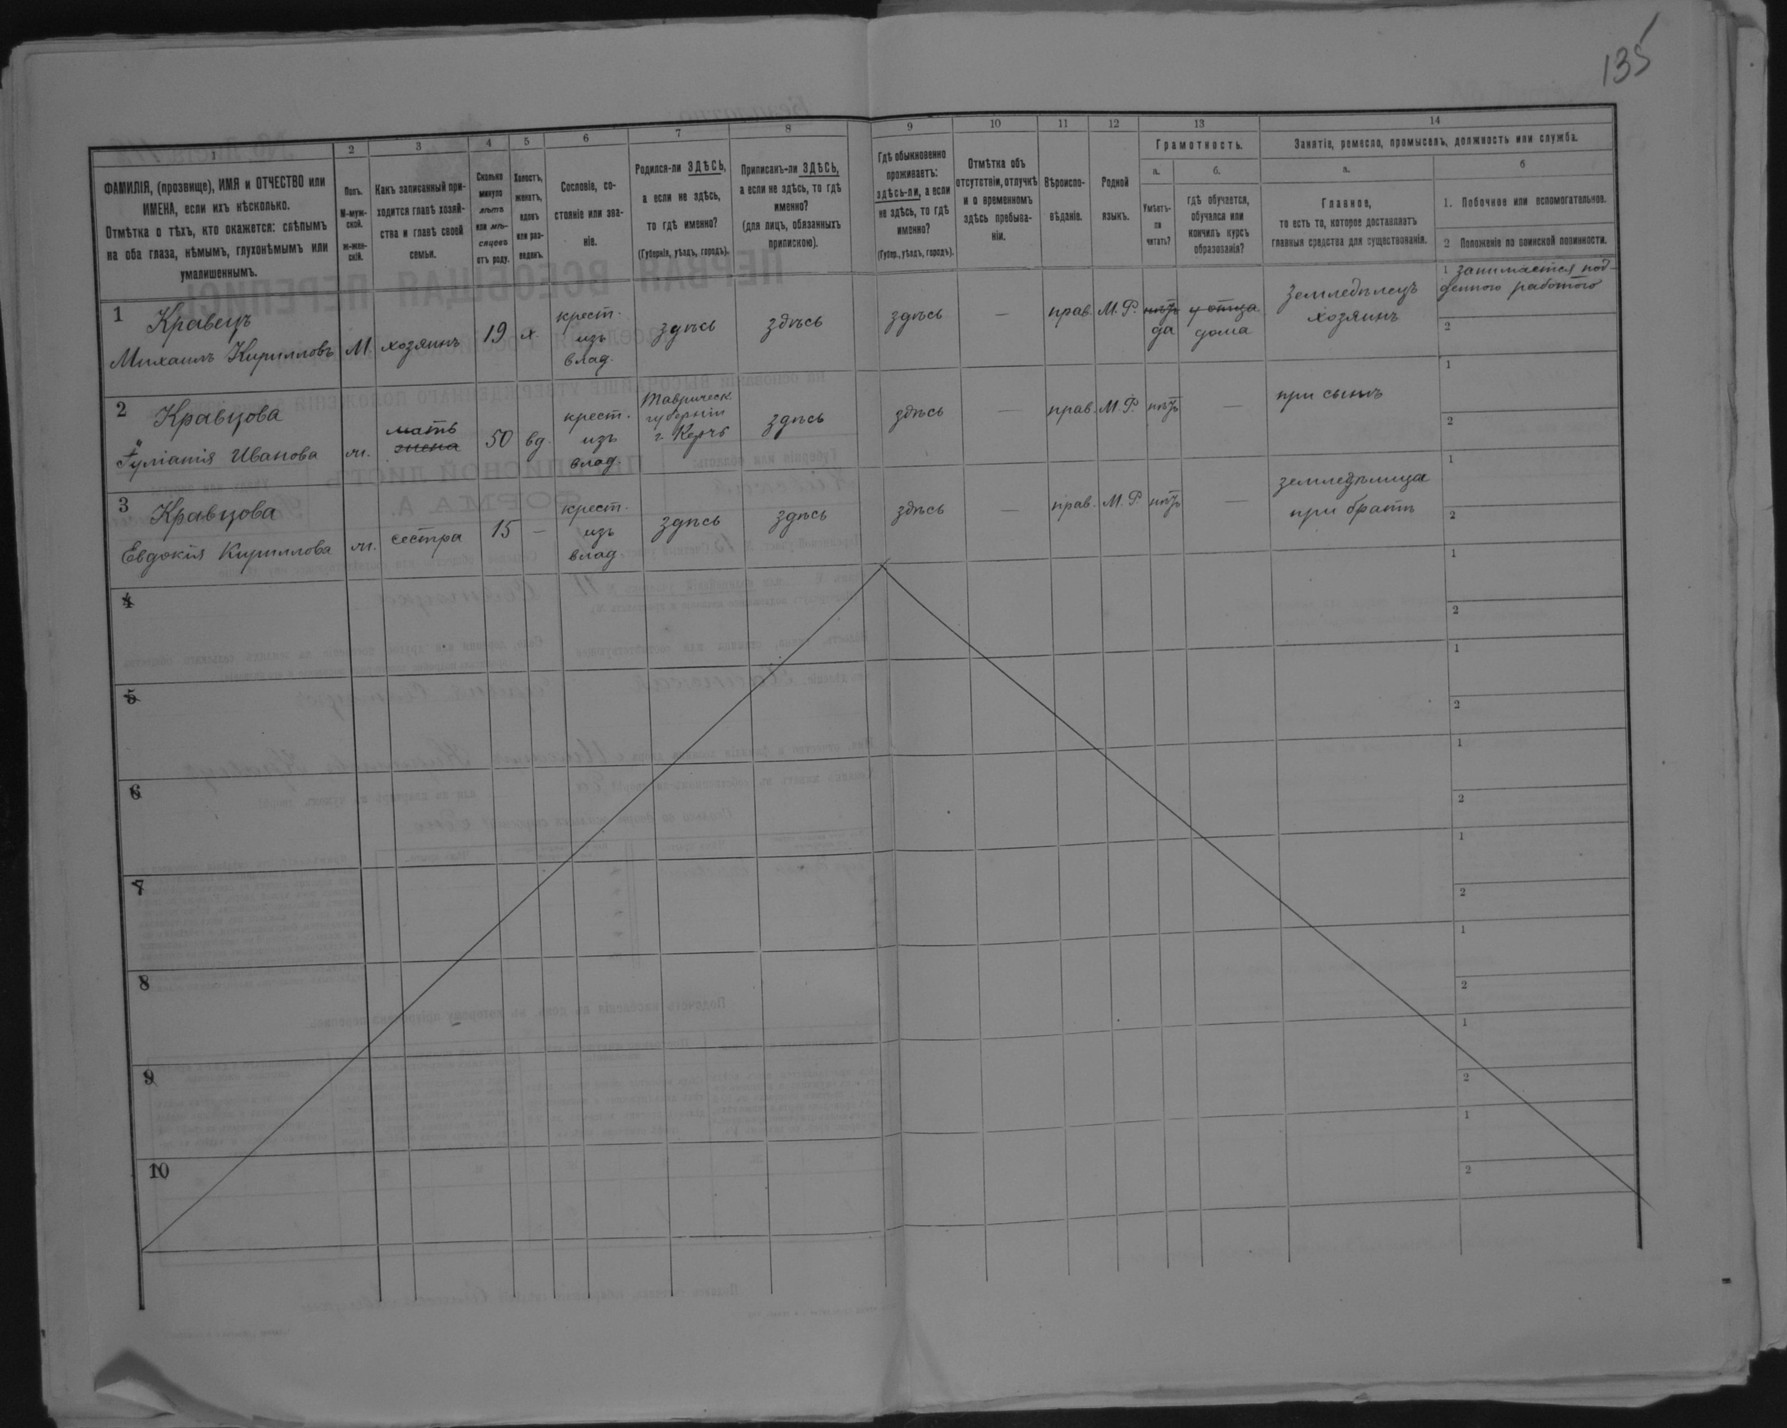 135
1
2
3
4
5
6
7
8
9
10
11
12
13
14
ФАМИЛІЯ, (прозвище), ИМЯ и ОТЧЕСТВО или
ИМЕНА, если ихъ нѣсколько.
Отмѣтка о тѣхъ, кто окажется: слѣпымъ
на оба глаза, нѣмымъ, глухонѣмымъ или
умалишеннымъ.
Полъ.
М-муж-
ской.
ж-жен-
скій.
Какъ записанный при-
ходится главѣ хозяй-
ства и главѣ своей
семьи.
Сколько
минуло
лѣтъ
или мѣ-
сяцевъ
отъ роду.
Холостъ,
женатъ,
вдовъ
или раз-
веденъ.
Сословіе, со-
стояніе или зва-
ніе.
Родился-ли ЗДѢСЬ,
а если не здѣсь,
то гдѣ именно?
(Губернія, уѣздъ, городъ).
Приписанъ-ли ЗДѢСЬ,
а если не здѣсь, то гдѣ
именно?
(для лицъ, обязанныхъ
припискою).
Гдѣ обыкновенно
проживаетъ:
здѣсь-ли, а если
не здѣсь, то гдѣ
именно?
(Губер., уѣздъ, городъ).
Отмѣтка объ
отсутствіи, отлучкѣ
и о временномъ
здѣсь пребыва-
ніи.
Вѣроиспо-
вѣданіе.
Родной
языкъ.
Грамотность.
а.
Умѣетъ-
ли
читать?
б.
гдѣ обучается,
обучался или
кончилъ курсъ
образованія?
Занятіе, ремесло, промыселъ, должность или служба.
а.
Главное,
то есть то, которое доставляетъ
главныя средства для существованія.
б
1. Побочное или вспомогательное.
2 Положеніе по воинской повинности.
1
Кравецъ
Михаилъ Кирилловъ
М
хозяинъ
19
х.
крест.
изъ
влад.
здѣсь
здѣсь
здѣсь
—
прав.
М. Р.
нѣтъ
да
у отца
дома
земледѣлецъ
хозяинъ
1 занимается под-
денною работою
2
2
Кравцова
Гуліанія Иванова
ж.
мать
жена
50
вд.
крест.
изъ
влад.
Таврическ
губерніи
г. Керчь
здѣсь
здѣсь
—
прав.
М. Р.
нѣтъ
—
при сынѣ
1
2
3
Кравцова
Евдокія Кириллова
ж.
сестра
15
—
крест.
изъ
влад.
здѣсь
здѣсь
здѣсь
—
прав.
М. Р.
нѣтъ
—
земледѣлица
при братѣ
1
2
4
1
2
5
1
2
6
1
2
7
1
2
8
1
2
9
1
2
10
1
2